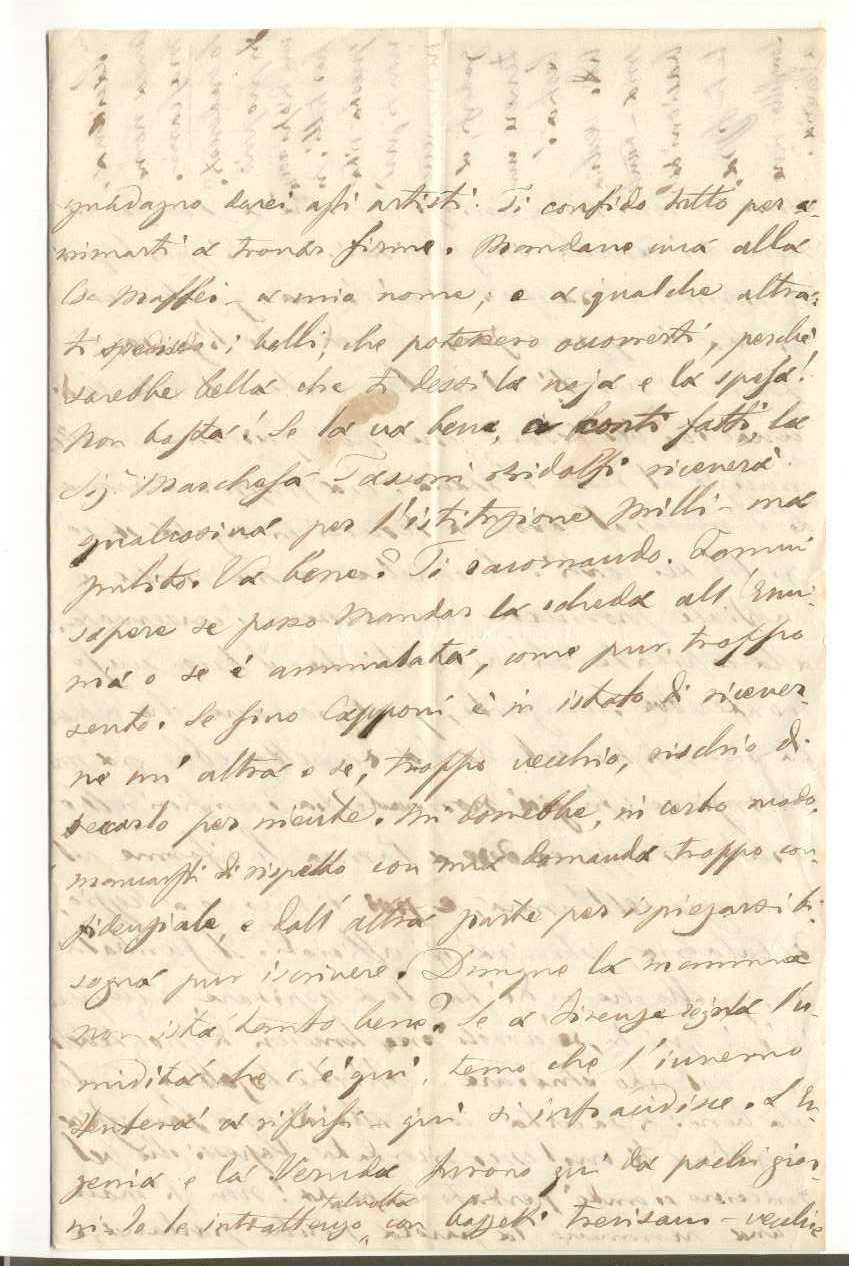 guadagno darei agli artisti. Ti confido tutto per a-
nimarti a trovar firme. Mandane una alla
Csa Maffei - a mio nome, e a qualche altra:
ti spedisco i bolli, che potessero occorrerti, perchè
sarebbe bella che ti dessi la noja e la spesa!
Non basta! Se la va bene, a conti fatti, la
Sigra Marchesa Tassoni Ridolfi riceverà
qualcosina per l'istituzione Milli - ma
pulito. Va bene? Ti raccomando. Fammi
sapere se posso mandar la scheda all'Emi-
nia o se è ammalata, come pur troppo
sento. Se Gino Capponi è in istato di ricever-
ne un'altra o se, troppo vecchio, rischio di
seccarlo per niente. Mi dorrebbe, in certo modo,
mancargli di rispetto con una domanda troppo con-
fidenziale, e dall'altra parte per ispiegarsi bi-
sogna pur iscrivere. Dunque la mamma
non istà tanto bene? Se a Firenze regna l'u-
midità che c'è quì, temo che l'inverno
stenterà a rifarsi - quì si infracidisce. L'Eu-
genia e la Veruda furono quì da pochi gior-
ni. Io le intrattengo talvolta con bozzetti trevisani - vecchie